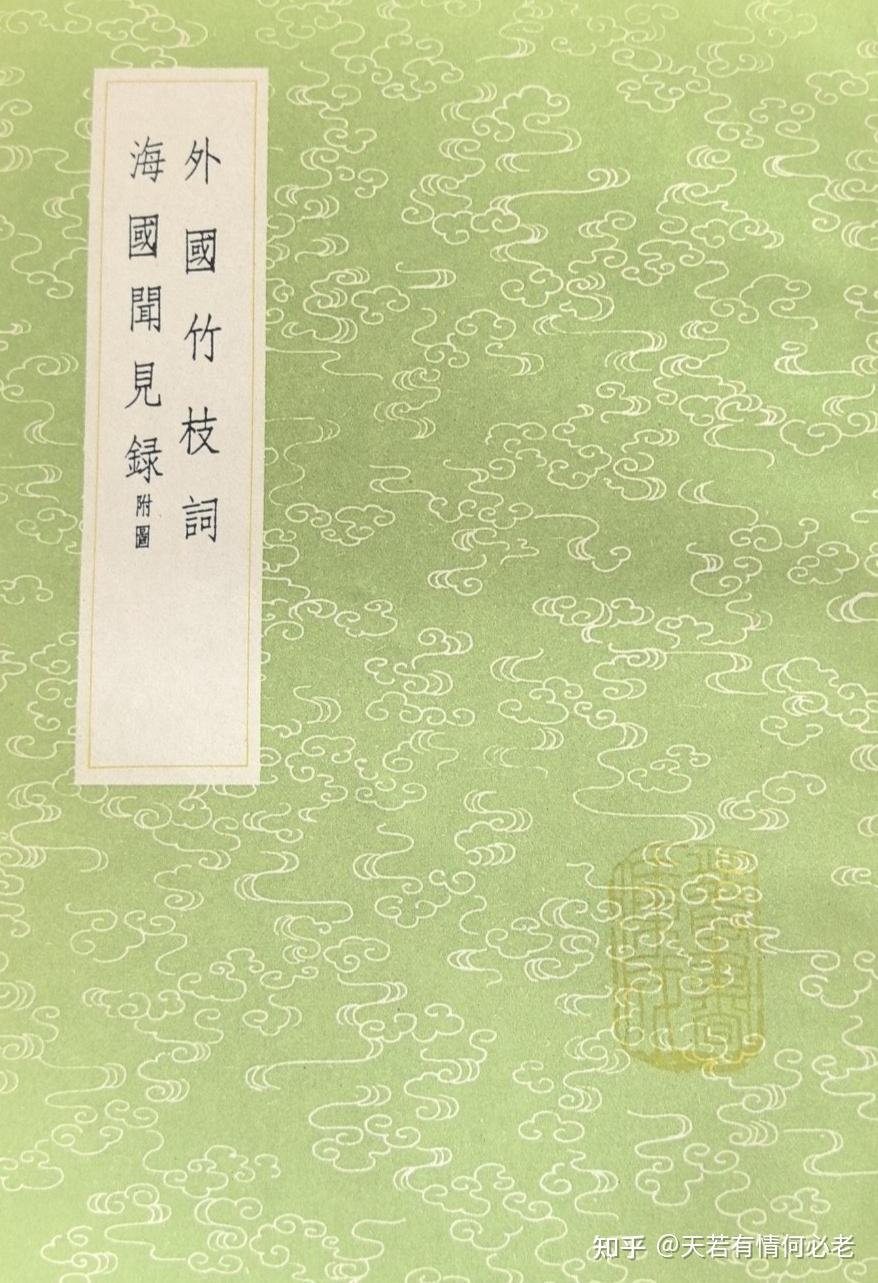 外國竹枝詞
海國聞見録附圖
知乎 @天若有情何必老